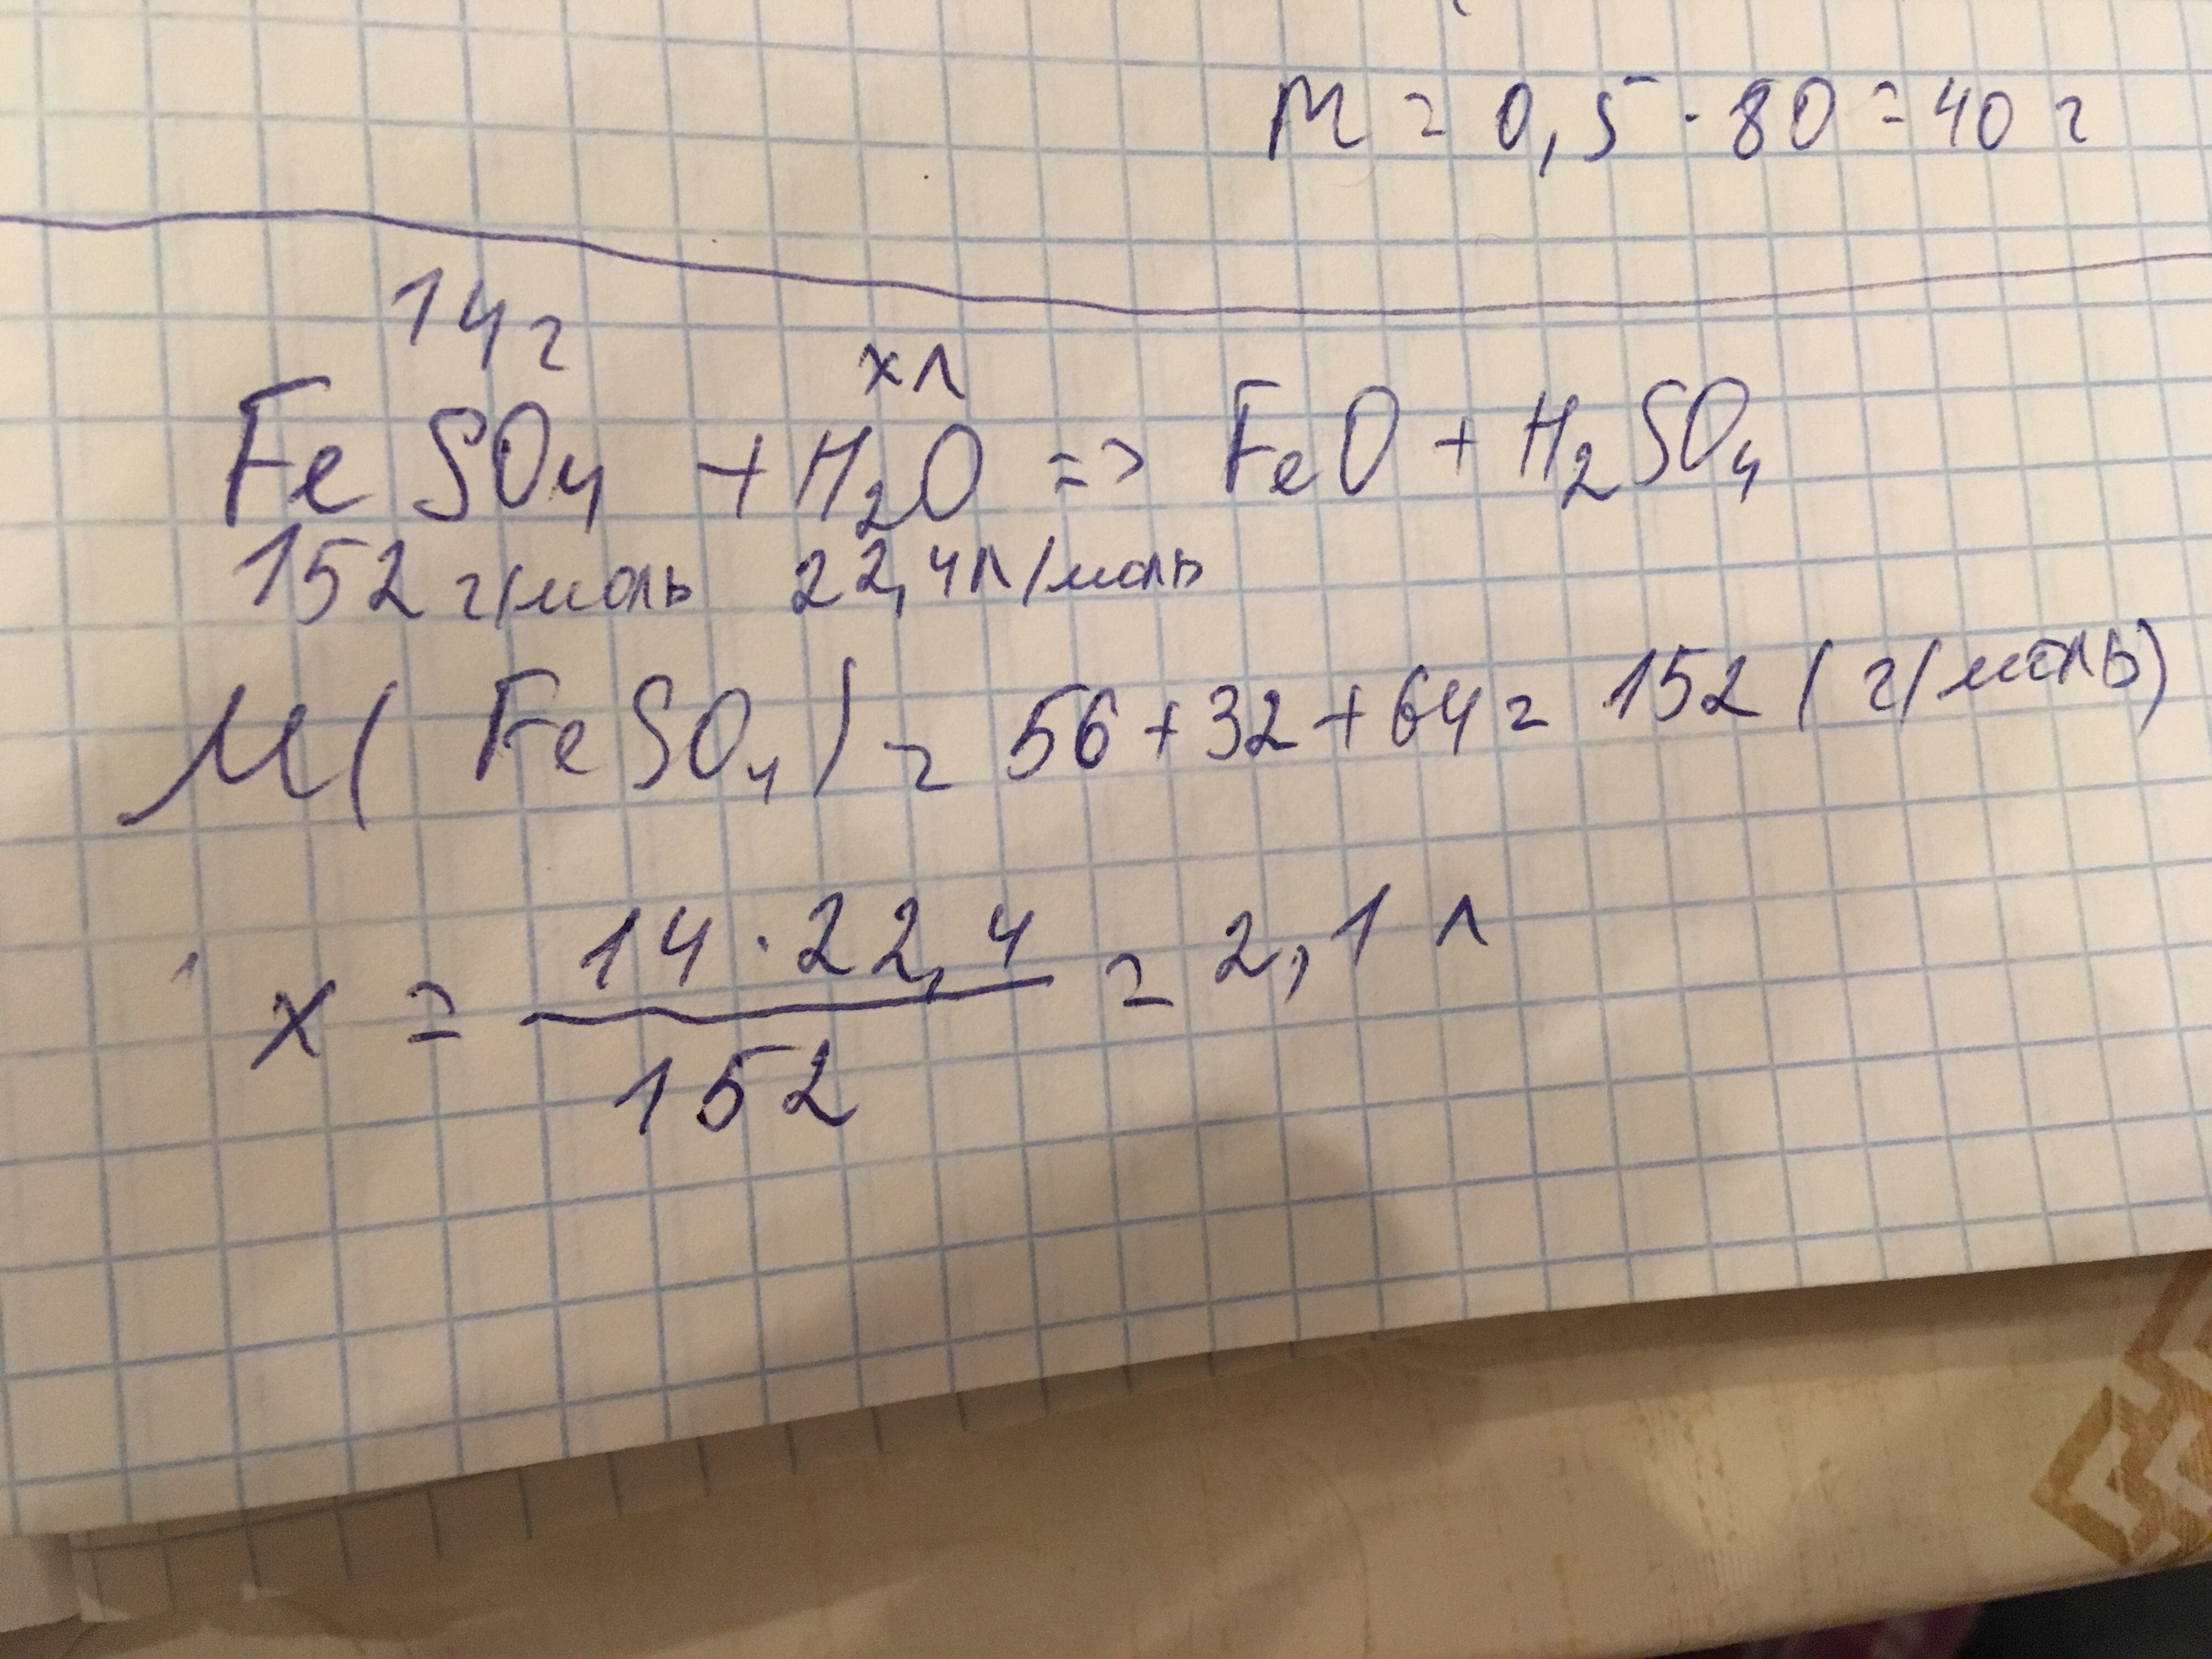 m = 0,5 · 80 = 40 г
14г
x л
FeSO₄ + H₂O => FeO + H₂SO₄
152 г/моль 22,4л/моль
M( FeSO₄) = 56+32+64 = 152 (г/моль)
x = 14 · 22,4 / 152 = 2,1 л